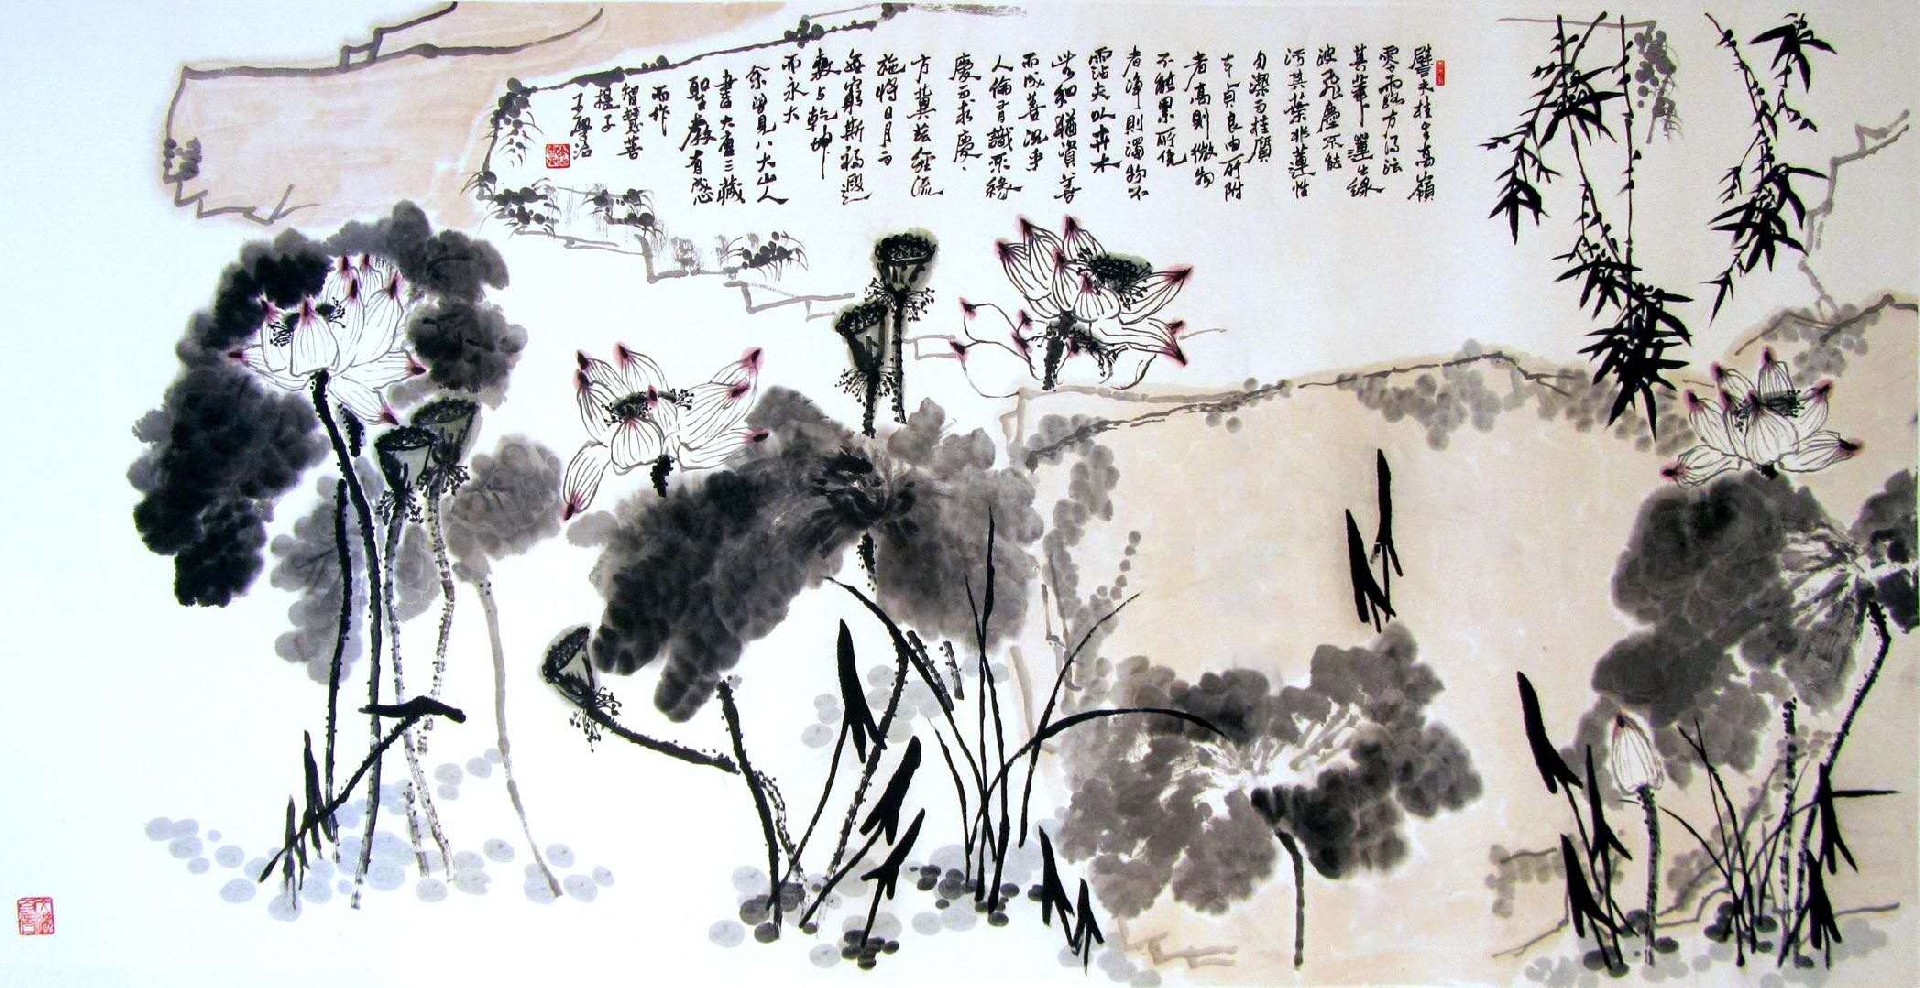 譬夫桂生高嶺
零露方得泫
其華蓮出綠
波飛塵不能
污其葉非蓮性
自潔而桂質
本貞良由所附
者高則微物
不能累所憑
者淨則濁物不
霑夫以卉木
無知猶資善
而成善況乎
人倫有識不緣
慶而求慶
方冀茲經流
施將日月而
無窮斯福遐
敷与乾坤
而永大
余曾見八大山人
書大唐三藏
聖教有感
而作
智慧善